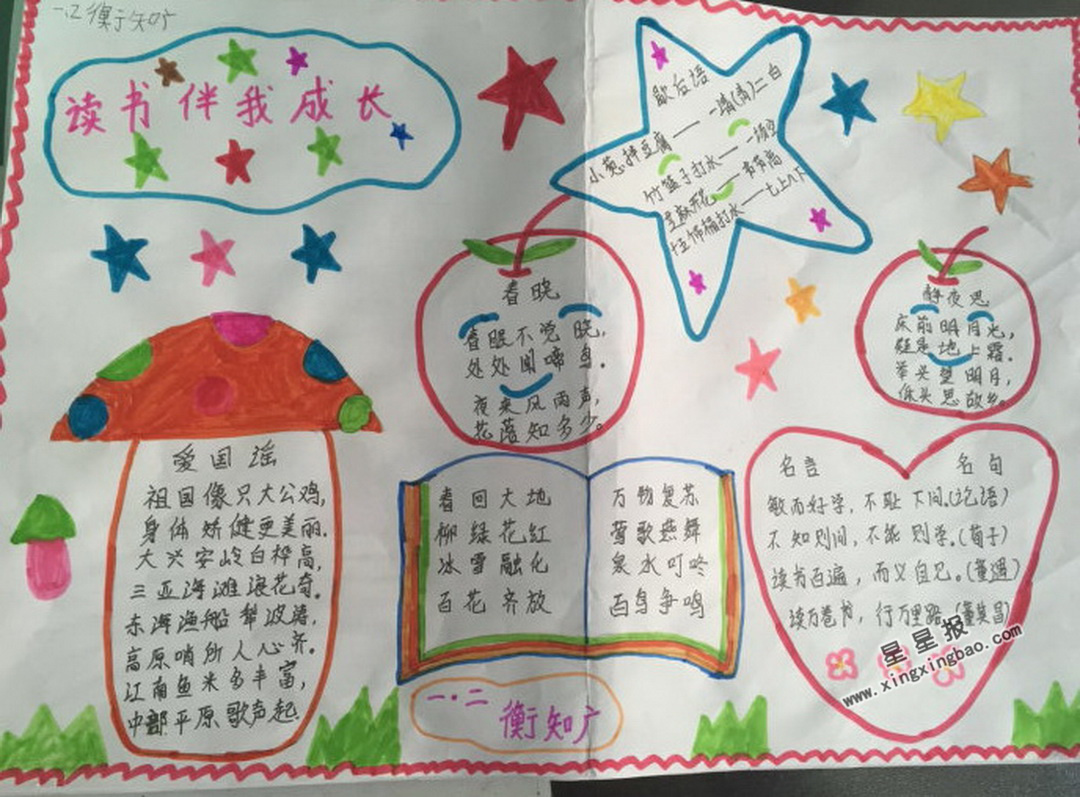 一.2衡知广
读书伴我成长
歇后语
小葱拌豆腐——一清(青)二白
竹篮子打水——一场空
芝麻开花——节节高
十五个桶打水——七上八下
春晓
春眠不觉晓,
处处闻啼鸟.
夜来风雨声,
花落知多少.
静夜思
床前明月光,
疑是地上霜.
举头望明月,
低头思故乡.
爱国谣
祖国像只大公鸡,
身体矫健更美丽.
大兴安岭白桦高,
三亚海滩浪花奇.
东海渔船犁波涛,
高原哨所人心齐.
江南鱼米多丰富,
中部平原歌声起.
春回大地
柳绿花红
冰雪融化
百花齐放
万物复苏
莺歌燕舞
泉水叮咚
百鸟争鸣
名言 名句
敏而好学,不耻下问.(论语)
不知则问,不能则学.(荀子)
读书百遍,而义自见.(董遇)
读万卷书,行万里路.(董其昌)
一.二
衡知广
星星报
www.xingxingbao.com